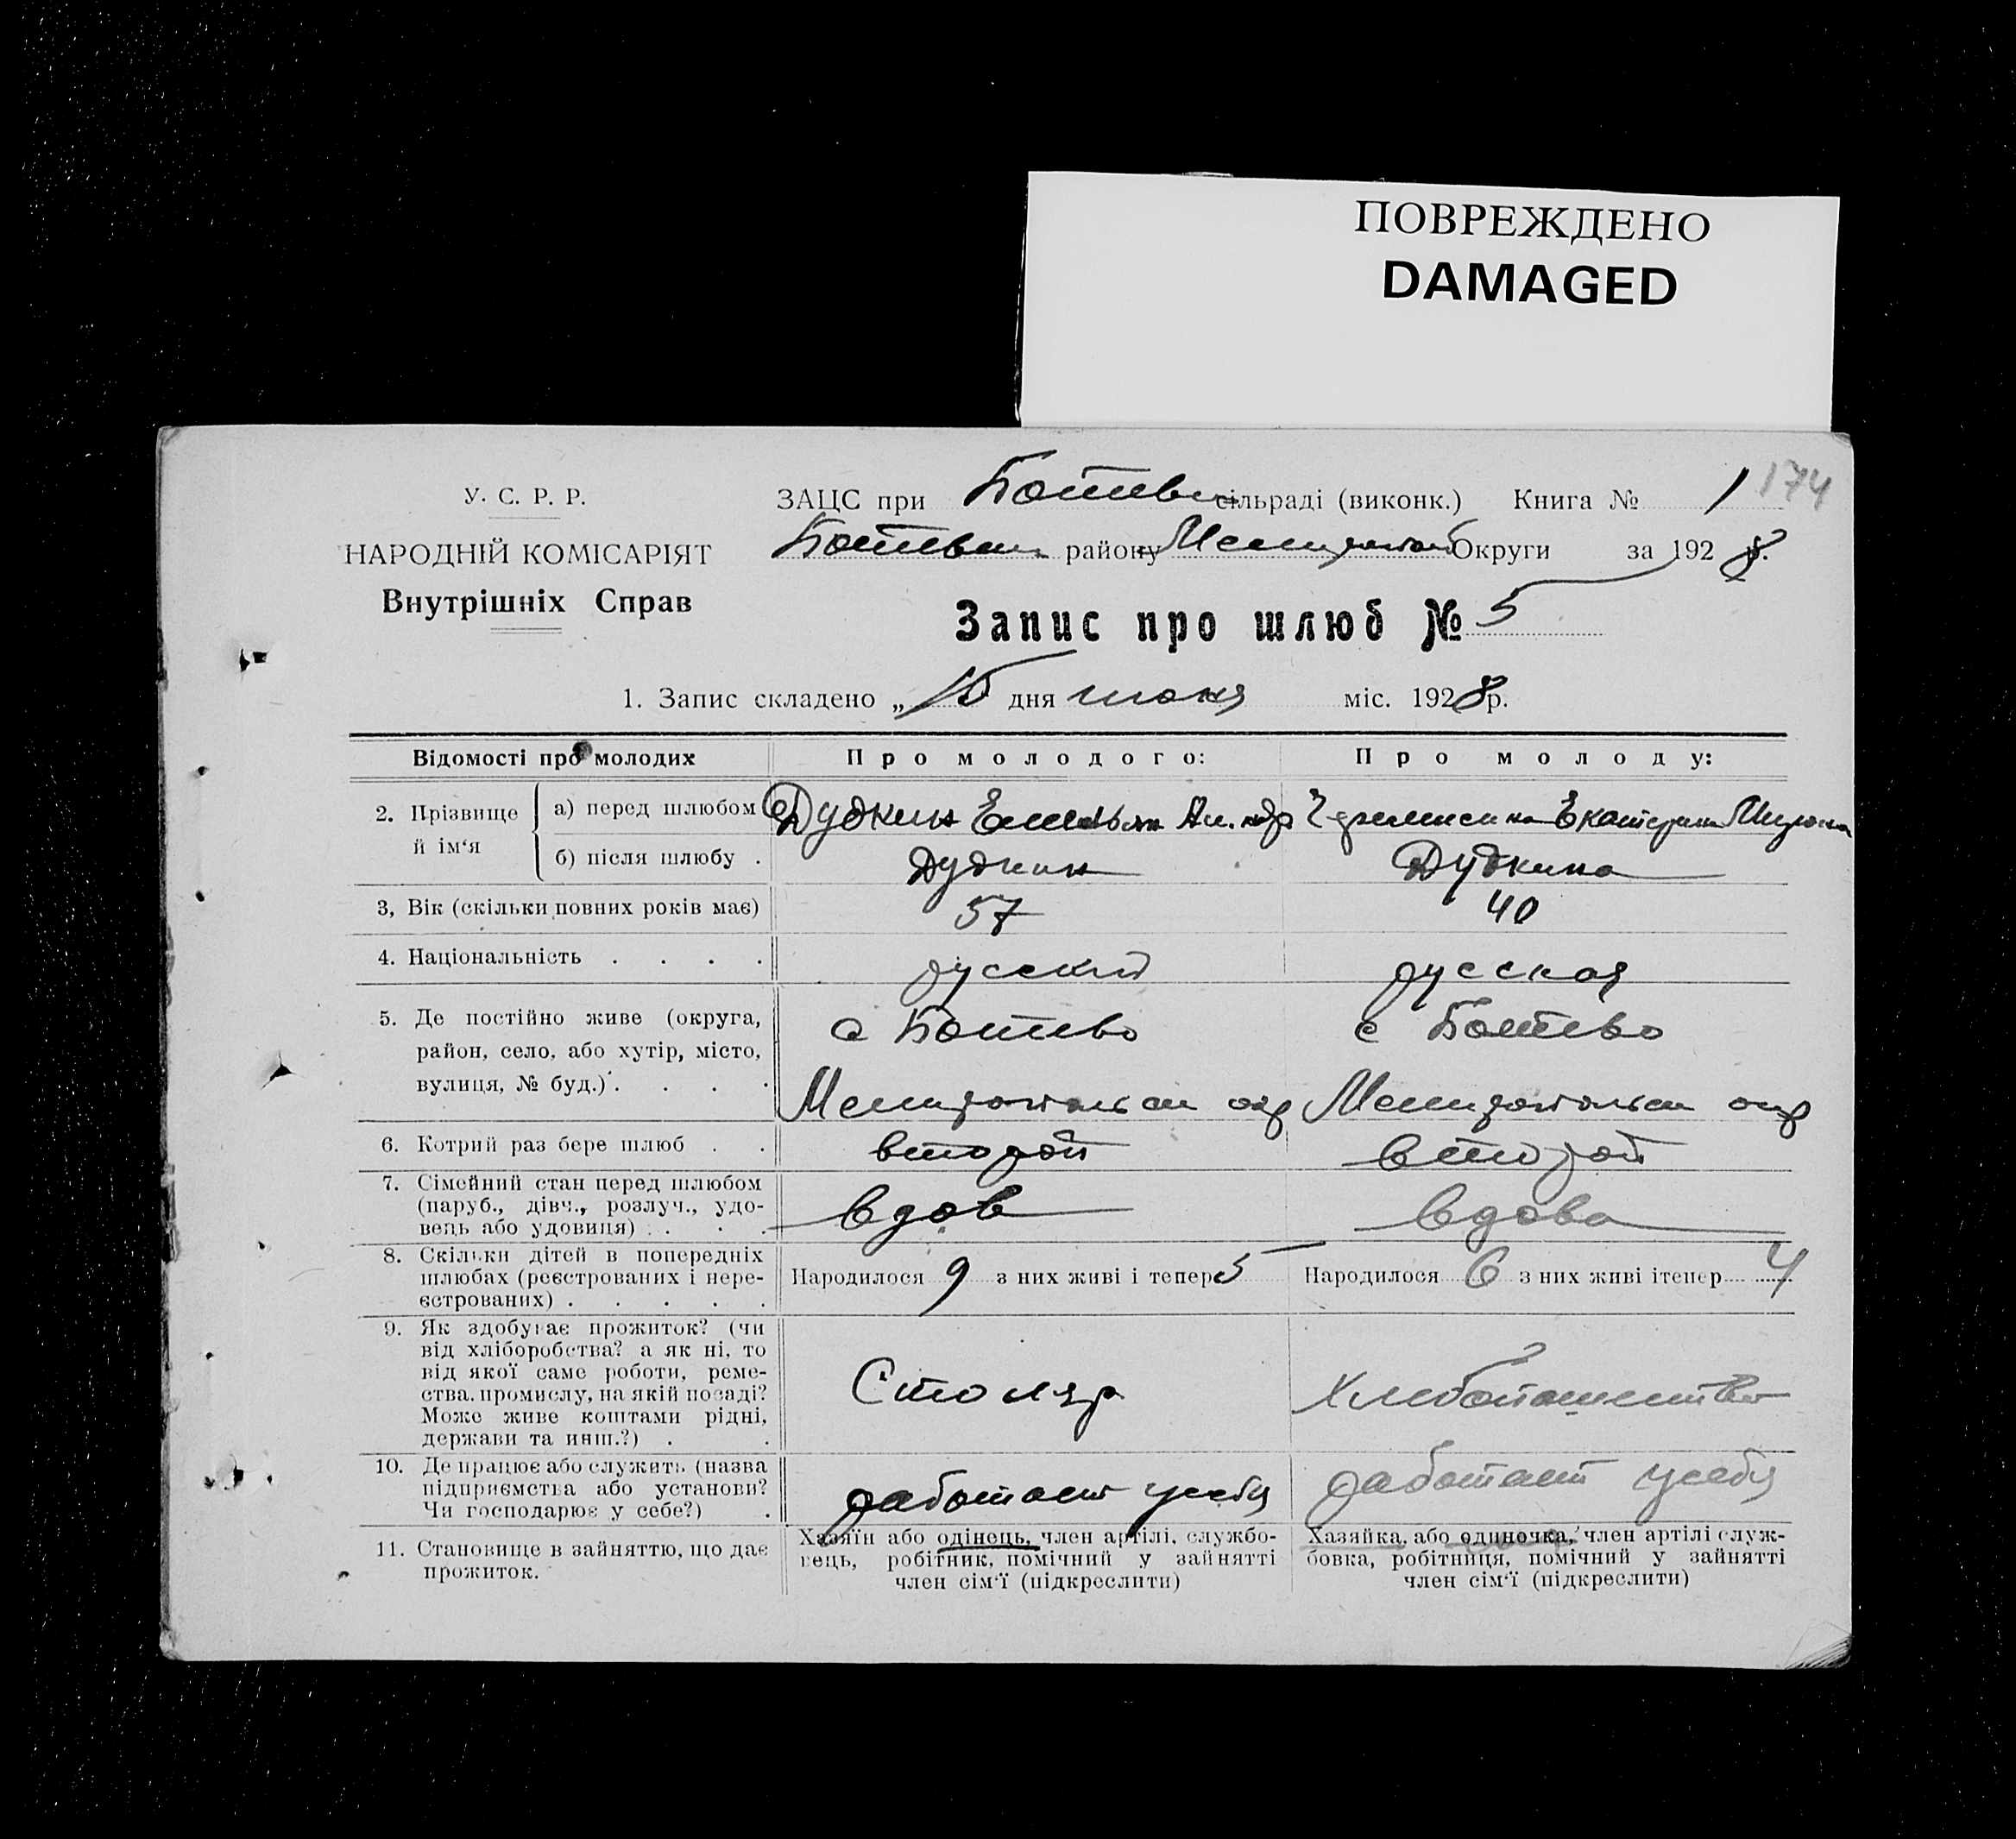 ПОВРЕЖДЕНО
DAMAGED
174
У. С. Р. Р.
НАРОДНІЙ КОМІСАРІЯТ
Внутрішніх Справ
ЗАЦС при Ботiевск сільраді (виконк.) Книга № 1
Ботiевск району Мелитопол Округи за 1928 р.
Запис про шлюб № 5
1. Запис складено „ 15 дня июня міс. 1928 р.
Відомості про молодих
Про молодого:
Про молоду:
2. Прізвище й ім‘я
а) перед шлюбом
Дудкин Емельян
Екатерина
б) після шлюбу .
Дудкин
Дудкина
3, Вік (скільки повних років має)
57
40
4. Національність . . . .
русский
русская
5. Де постійно живе (округа,
район, село, або хутір, місто,
вулиця, № буд.) . . . .
с Ботиево
Мелитопольск окр
с Ботиево
Мелитопольск окр
6. Котрий раз бере шлюб . .
второй
второй
7. Сімейний стан перед шлюбом
(паруб., дівч., розлуч., удо-
вець або удовиця) . . . .
вдов
вдова
8. Скільки дітей в попередніх
шлюбах (реєстрованих і нере-
єстрованих) . . . . .
Народилося 9 з них живі і тепер 5
Народилося 6 з них живі ітепер 4
9. Як здобуває прожиток? (чи
від хліборобства? а як ні, то
від якої саме роботи, реме-
ства, промислу, на якій посаді?
Може живе коштами рідні,
держави та инш.?) . .
Столяр
Хлебопашество
10. Де працює або служить (назва
підприємства або установи?
Чи господарює у себе?) .
работает у себя
работает у себя
11. Становище в зайняттю, що дає
прожиток.
Хазяїн або одінець, член артілі, службо-
вець, робітник, помічний у зайнятті
член сім‘ї (підкреслити)
Хазяйка, або одиночка, член артілі служ-
бовка, робітниця, помічний у зайнятті
член сім‘ї (підкреслити)